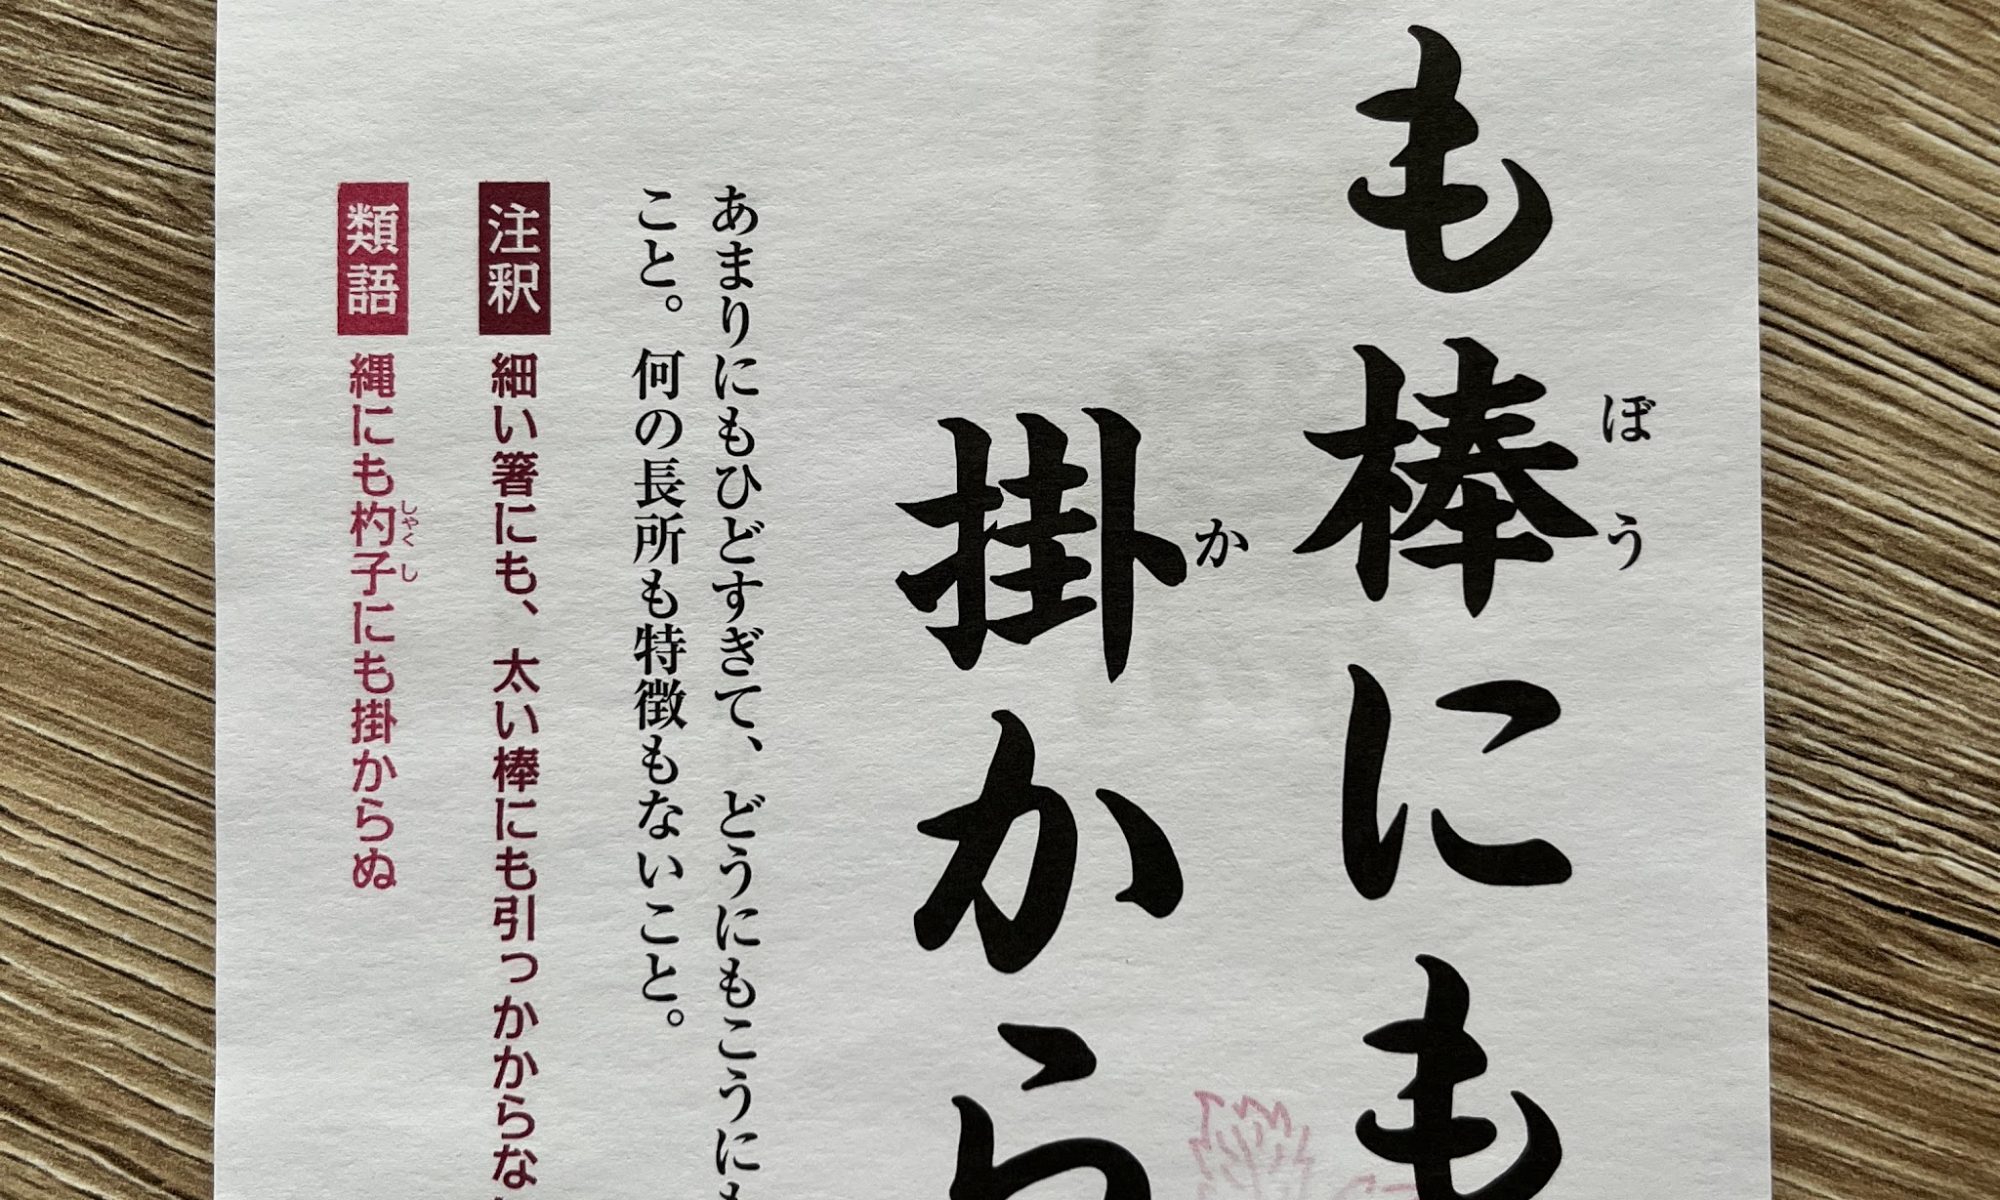 も棒にも
ぼう
掛から
か
あまりにもひどすぎて、どうにもこうにも
こと。何の長所も特徴もないこと。
注釈 細い箸にも、太い棒にも引っかからな
類語 縄にも杓子にも掛からぬ
しゃくし